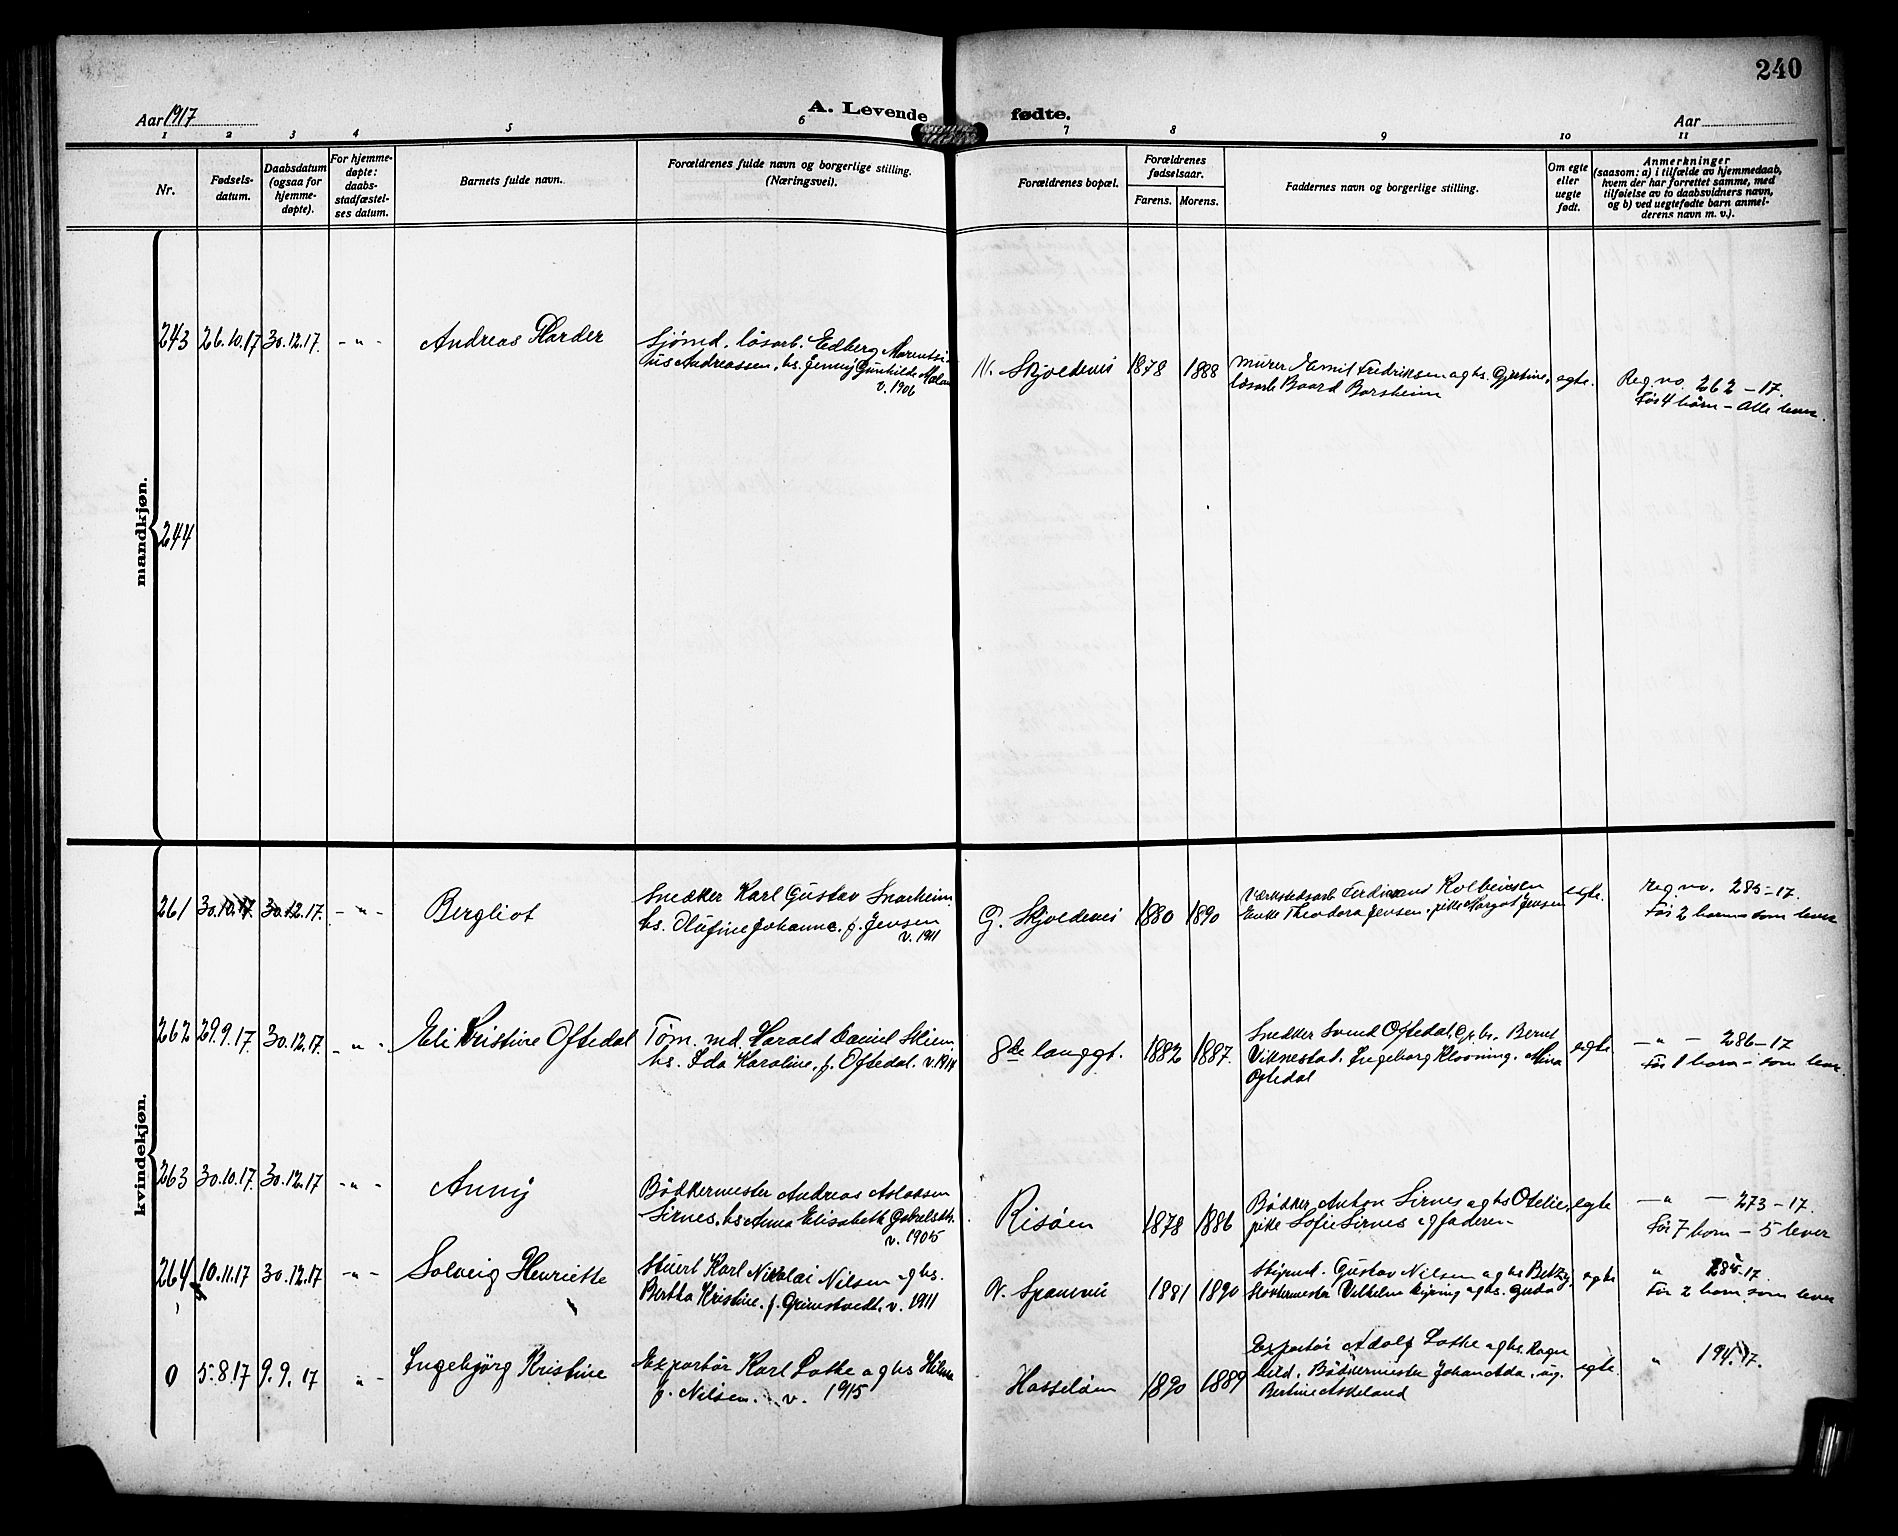 240
Aar 1917
A. Levende fødte.
Aar
1 2 3 4 5 6 7 8 9 10 11
Nr.
Fødsels-
datum.
Daabsdatum
(ogsaa for
hjemme-
døpte).
For hjemme-
døpte:
daabs-
stadfæstel-
ses datum.
Barnets fulde navn.
Forældrenes fulde navn og borgerlige stilling.
(Næringsvei).
Forældrenes bopæl.
Forældrenes
fødselsaar.
Farens. Morens.
Faddernes navn og borgerlige stilling.
Om egte
eller
uegte
født.
Anmerkninger
(saasom: a) i tilfælde av hjemmedaab,
hvem der har forrettet samme, med
tilføielse av to daabsvidners navn,
og b) ved uegtefødte barn anmel-
derens navn m. v.).
mandkjøn.
243 26.10.17 30.12.17. - " -
Andreas Harder
Sjømd. løsarb. Edberg Marentsi-
us Andreassen, hs. Jenny Gunhilde
v. 1906
N. Skjoldevei 1878 1888
Murer Emil Fredriksen og hs. Gjertine,
løsarb Baard Borsheim
egte.
Reg. no. 262 - 17.
Før 4 børn - Alle lever.
244
kvindekjøn.
261 30.10.17. 30.12.17. - " -
Bergliot
Snedker Karl Gustav Snarheim
hs. Olufine Johanne, f. Jensen
v. 1911
G. Skjoldevei 1880 1890
Værkstedsarb Ferdinand Kolbeinsen
Enke Theodora Jensen, pike Margot Jensen
egte.
reg. no. 285 - 17.
Før 2 børn som lever
262 29.9.17. 30.12.17. - " -
Eli Kristine Oftedal
Tøm. md. Harald Daniel Skiem
hs. Ida Karoline, f. Oftedal. v. 1914
8de langgt. 1882 1887.
Snedker Svend Oftedal, og hs. Berent
Viknestad. Ingeborg Klovning. Mina
Oftedal
egte
- " - 286 - 17
Før 1 barn - som lever
263 30.10.17. 30.12.17 - " -
Anny
Bødkermester Andreas Aslaksen
Sirnes, hs Anna Elisabeth Gabrielsdtr.
v. 1905
Risøen 1878 1886
Bødker Anton Sirnes og hs Otelie,
pike Sofie Sirnes og faderen
egte
- " - 273 - 17.
Før 7 born - 5 lever
264 10.11.17 30.12.17 - " -
Solveig Henriette
Stuert Karl Nikolai Nilsen og hs.
Bertha Kristine, f. Grimstvedt. v. 1911
N. Spannvei 1881 1890
Skipsmd. Gustav Nilsen og hs Betzy,
Vilhelm og hs.
egte
" 17.
Før 2 born som lever
0 5.8.17 9.9.17 " -
Ingebjørg Kristine
Exportør Karl Lothe og hs Hilma
f. Nilsen. v. 1915
Hasseløen 1890 1889
Exportør Adolf Lothe og hs. Ragn
hild, Bødkermester Johan Ada, ug.
Bertine Askeland
egte.
" 194.17.